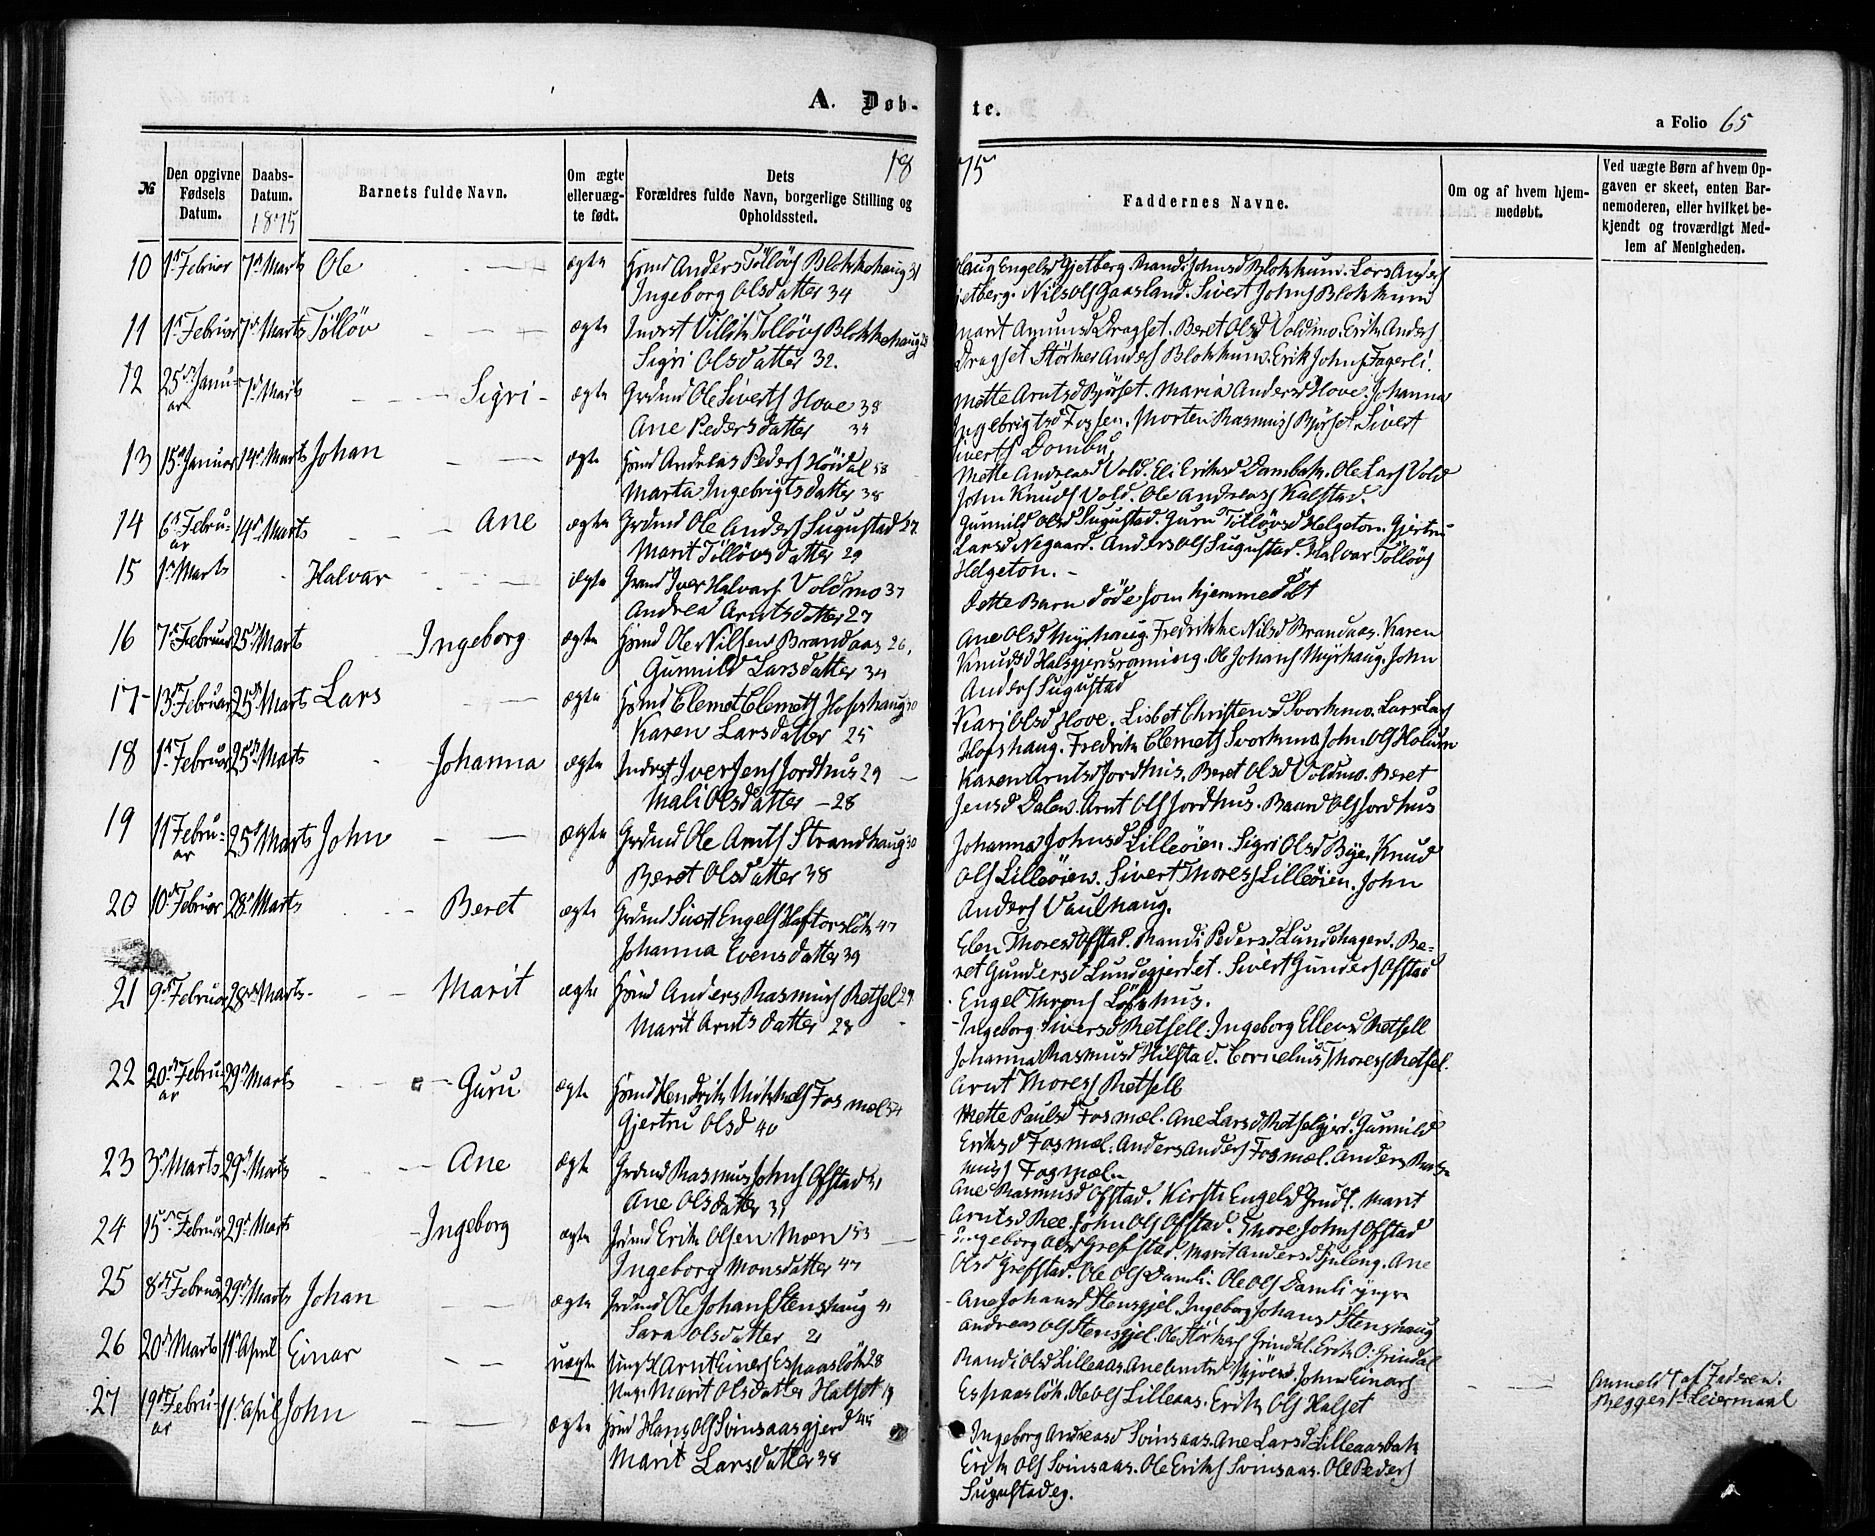 A. Døb-
te.
a Folio 65
18
75
№
Den opgivne Fødsels Datum.
Daabs-Datum. 1875
Barnets fulde Navn.
Om ægte eller uægte født.
Dets Forældres fulde Navn, borgerlige Stilling og Opholdssted.
Faddernes Navne.
Om og af hvem hjem-
medøbt.
Ved uægte Børn af hvem Op-
gaven er skeet, enten Bar-
nemoderen, eller hvilket be-
kjendt og troværdigt Med-
lem af Menigheden.
10 1st Februar 7d Marts Ole ægte Anders Tølløvs Blokkehaug 31
Ingeborg Olsdatter 34
Haug Engelsd Gjetberg. Randi Johnsd Blokkum. Lars Anders
Gjetberg. Nils Ols Gaasland. Sivert Johns Blokkum
11 1st Februar 7d Marts Tølløv ægte Tølløvs Blokkehaug
Sigri Olsdatter 32.
Marit Amunds Dragset. Beret Olsd Voldmo. Erik Anders
Dragset Størker Anders Blokkum. Erik Johns Fagerli.
12 25d Janu-
ar 7d Marts Sigri ægte Grdmd Ole Siverts Hove 38
Ane Pedersdatter
Mette Arntsd Bjørset. Maria Andersd Hove. Johanna
Ingebrigtsd Fossen. Morten Rasmus Bjørset Sivert
Siverts Dombu
13 15d Januar 14d Marts Johan ægte Andreas Peders Høidal 58
Marta Ingebrigtsdatter 38
Mette Andreasd Vold. Eli Eriksd Dambakk. Ole Lars Vold
John Knuds Vold. Ole Andreas Kalstad.
14 6d Febru-
ar 14d Marts Ane ægte Grdmd Ole Anders Sugustad 37
Marit Tølløvsdatter 29
Gunnild Olsd Sugustad. Guru Tølløvsd Helgeton. Gjertru
Larsd Negaard. Anders Ols Sugustad. Halvar Tølløvs
Helgeton.
15 1st Marts Halvar ægte Iver Halvars Voldmo 37
Andrea Arntsdatter 27
Dette Barn døde som hjemmedøbt
16 7d Februar 25d Marts Ingeborg ægte Ole Nilsen Brandaas 26,
Gunnild Larsdatter 34
Ane Olsd Myrhaug. Fredrikke Nilsd Brandaas. Karen
Knudsd Halsgjerdsrønning. Ole Johans Myrhaug. John
Anders Sugustad
17 13d Februar 25d Marts Lars ægte Clemet Clemets Hofshaug 30
Karen Larsdatter 25
Kari Olsd Hove. Lisbet Christensd Svorkmo. Lars Lars
Hofshaug. Fredrik Clemets Svorkmo John Ols Holum
18 1st Februar 25d Marts Johanna ægte Jordhus 29
Mali Olsdatter 28
Karen Arntsd Jordhus. Beret Olsd Voldmo. Beret
Jensd Dalen. Arnt Ols Jordhus. Baard Ols Jordhus
19 11 Febru-
ar 25d Marts John ægte Grdmd Ole Arnts Strandhaug 30
Beret Olsdatter 38
Johanna Johnsd Lilleøien. Sigri Olsd Bye. Knud
Ols Lilleøien. Sivert Thores Lilleøien. John
Anders Vaulhaug.
20 10d Februar 28d Marts Beret ægte Grdmd Sivert Engels Haftorsløk 47
Johanna Evensdatter 39
Elen Thoresd Ofstad. Randi Pedersd Lundehagen. Be-
ret Gundersd Lundegjerdet. Sivert Gunders Ofstad
Engel Løkhus.
21 9d Februar 28d Marts Marit ægte Anders Rasmus Retsel 29
Marit Arntsdatter 28
Ingeborg Siversd Retsell. Ingeborg Ellevsd Retsell
Johanna Rasmusd Hilstad. Cornelius Thores Retsel.
Arnt Thores Retsell
22 20d Febru-
ar 29d Marts Guru ægte Hendrik Mikkels Fosmæl 54
Gjertru Olsd 40
Mette Paulsd Fosmæl. Ane Larsd Retselgjerd. Gunnild
Eriksd Fosmæl. Anders Anders Fosmæl. Anders Ras-
mus Fosmæl.
23 3d Marts 29d Marts Ane ægte Grdmd Rasmus Johns Ofstad
Ane Olsdatter
Ane Rasmusd Ofstad. Kirsti Engelsd Grut. Marit
Arntsd Ree. John Ols Ofstad. Thore Johns Ofstad
24 15d Februar 29d Marts Ingeborg ægte Grdmd Erik Olsen Moen 53
Ingeborg Monsdatter 47
Ingeborg Olsd Grefstad. Marit Andersd Kjuleng. Ane
Olsd Grefstad. Ole Ols Damli. Ole Ols Damli yngre
25 8d Februar 29d Marts Johan ægte Grdmd Ole Johans Stenshaug 41
Sara Olsdatter 21
Ane Johansd Stensgjel. Ingeborg Johansd Stenshaug
Andreas Ols Stensgjel. Ole Størkers Grindal. Erik O. Grindal
26 20d Marts 11d April Einar uægte Ungk Arnt Einars Espaasløk 28
Marit Olsdatter Halset
Randi Olsd Lilleaas. Ane Mjøen. John Einars
Espaasløk. Ole Ols Lilleaas. Erik Ols Halset
Anmeldt af Faderen.
Begges 1st Leiermaal
27 19d Febru-
ar 11d April John ægte Hans Ols Svinsaasgjerd 45
Marit Larsdatter 38
Ingeborg Andreasd Svinsaas. Ane Larsd Lilleaasbak
Erik Ols Svinsaas. Ole Eriks Svinsaas. Ole Peders
Sugustadeg.